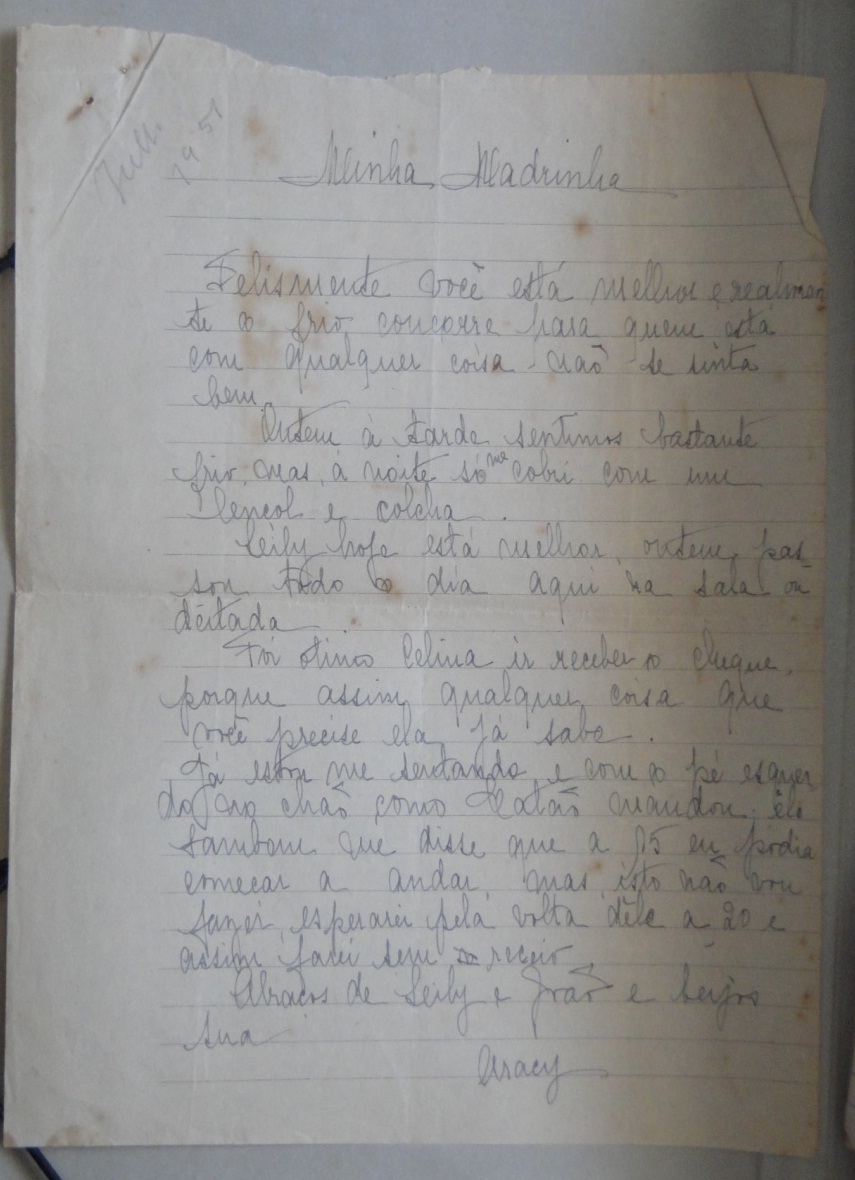 Jul.
1951
Minha Madrinha
Felismente você está melhor e realmen
te o frio concorre para quem está
com qualquer coisa não se sinta
bem.
Ontem à tarde sentimos bastante
frio, mas, à noite só me cobri com um
lençol e colcha.
Leily hoje está melhor, ontem pas-
sou todo o dia aqui na sala ou
deitada.
Foi otimo Celina ir receber o cheque,
porque assim qualquer coisa que
você precise ela já sabe.
Já estou me sentando e com o pé esquer
do no chão como mandou, êle
tambem me disse que a 15 eu podia
começar a andar mas isto não vou
fazer, esperarei pela volta dêle a 20 e
assim farei sem receio.
Abraços de Leily e João e beijos
sua
Aracy